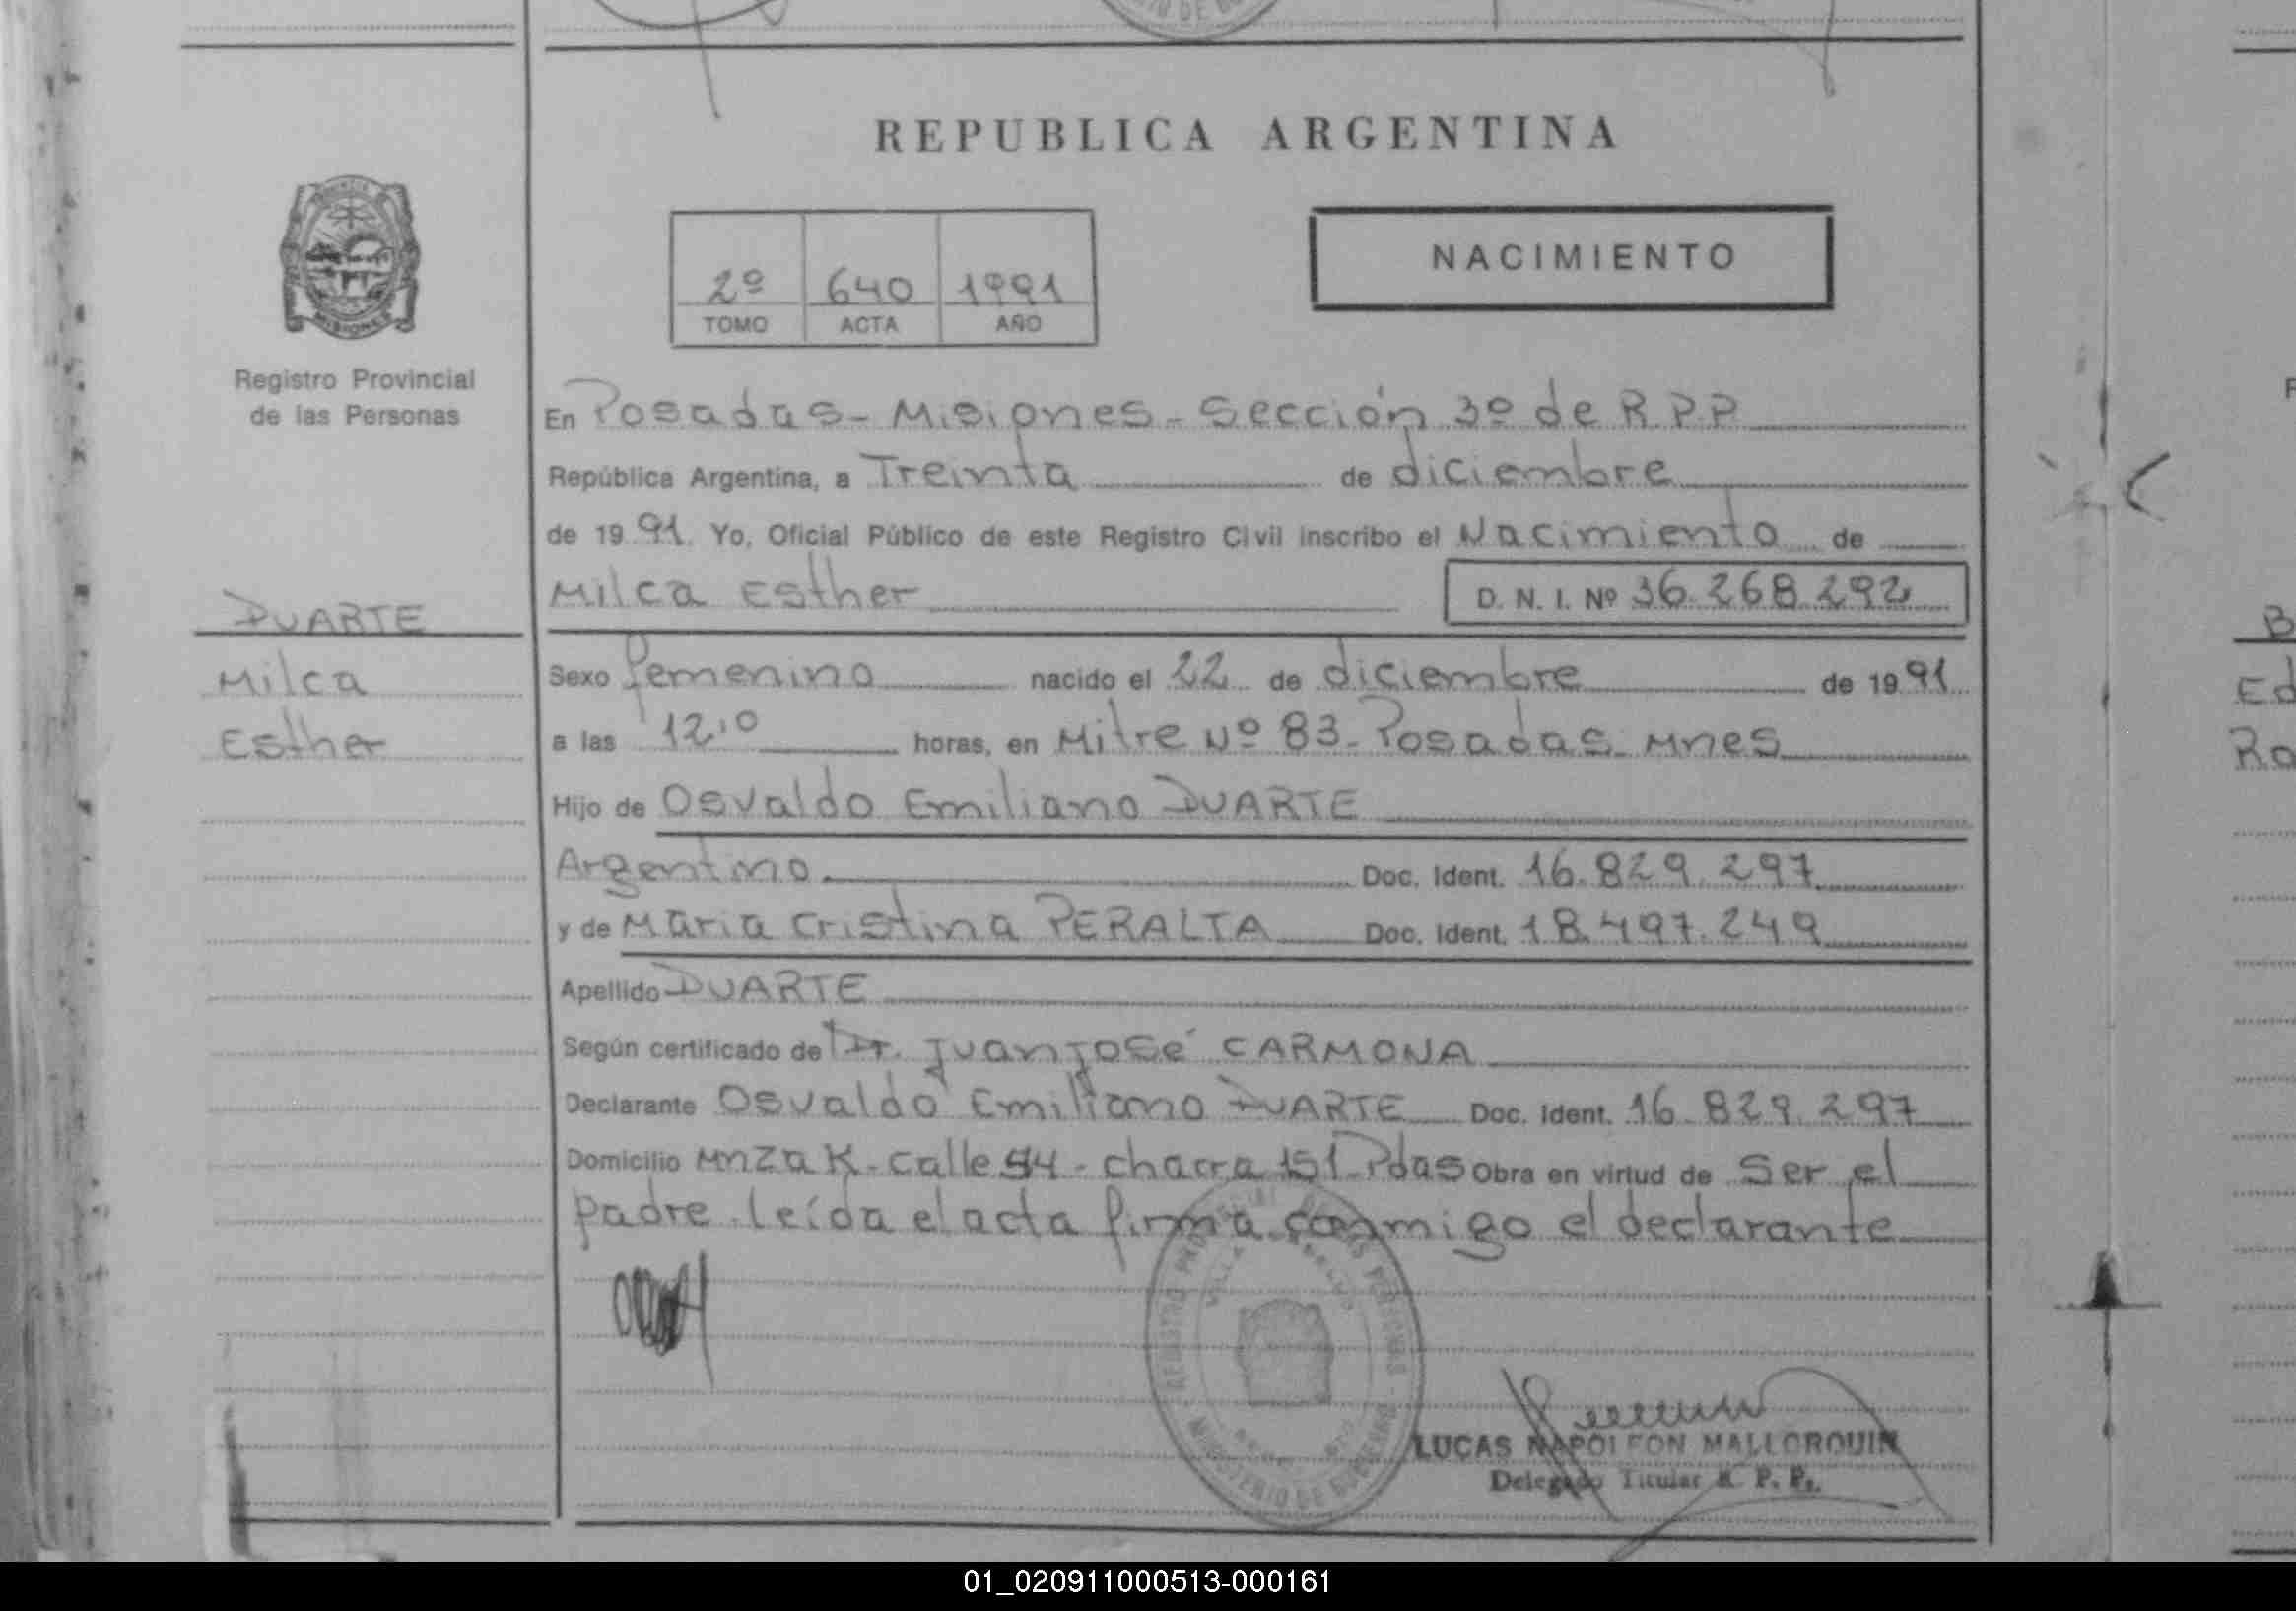 REPUBLICA ARGENTINA
NACIMIENTO
2º 640 1991
TOMO ACTA AÑO
MISIONES
Registro Provincial
de las Personas
En Posadas - Misiones - Sección 3º de R.P.P
República Argentina, a Treinta de diciembre
de 1991. Yo, Oficial Público de este Registro Civil inscribo el Nacimiento de
Milca Esther D. N. I. Nº 36.268.292
DUARTE
Milca
Esther
Sexo femenino nacido el 22 de diciembre de 1991
a las 12,0 horas, en Mitre Nº 83 - Posadas - Mnes
Hijo de Osvaldo Emiliano DUARTE
Argentino Doc. Ident. 16.829.297
y de Maria Cristina PERALTA Doc. Ident. 18.497.249
Apellido DUARTE
Según certificado de Dr. Juan José CARMONA
Declarante Osvaldo Emiliano DUARTE Doc. Ident. 16.829.297
Domicilio Mnza K - calle 54 - chacra 151 - Pdas Obra en virtud de Ser el
padre. leída el acta firma conmigo el declarante
MINISTERIO DE GOBIERNO
LUCAS NAPOLEON MALLORQUIN
Delegado Titular R. P. P.
B
Ed
Ro
01_020911000513-000161